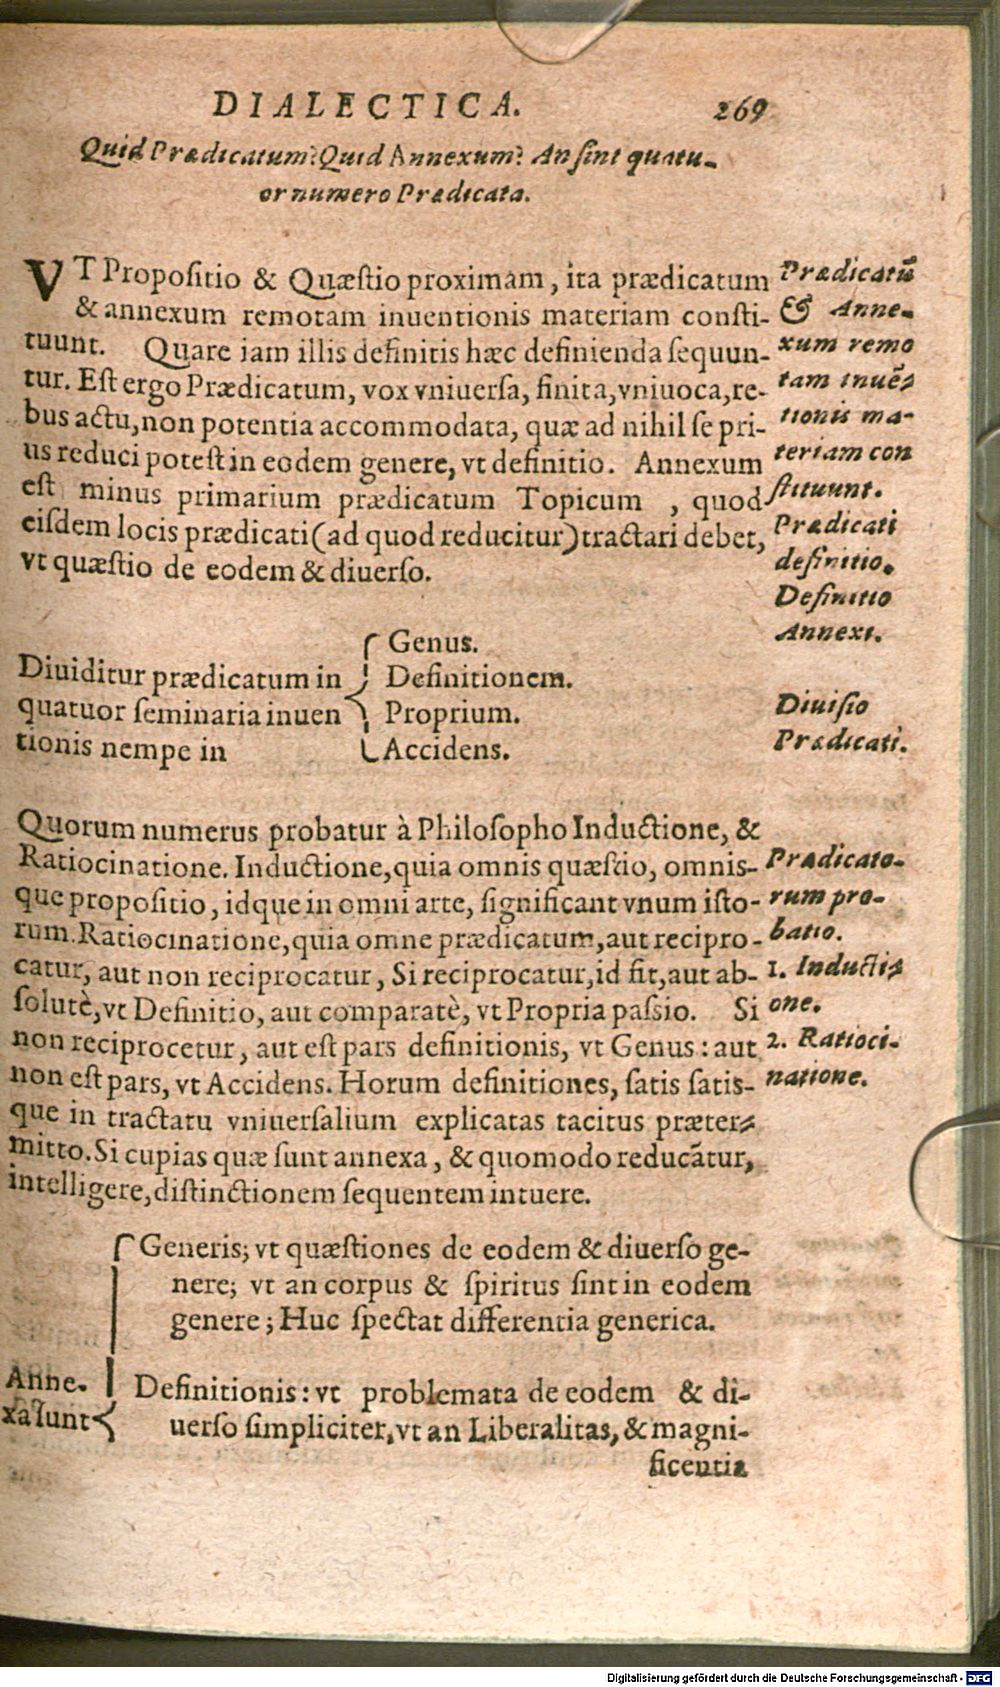 DIALECTICA. 269
Quid Prædicatum? Quid Annexum? An sint quatu-
or numero Prædicata.
VT Propositio & Quæstio proximam, ita prædicatum
& annexum remotam inuentionis materiam consti-
tuunt. Quare iam illis definitis hæc definienda sequun-
tur. Est ergo Prædicatum, vox vniuersa, finita, vniuoca, re-
bus actu, non potentia accommodata, quæ ad nihil se pri-
us reduci potest in eodem genere, vt definitio. Annexum
est minus primarium prædicatum Topicum , quod
eisdem locis prædicati (ad quod reducitur) tractari debet,
vt quæstio de eodem & diuerso.
Prædicatū
& Anne-
xum remo
tam inuē-
tionis ma-
teriam con
stituunt.
Prædicati
definitio.
Definitio
Annexi.
Diuiditur prædicatum in
quatuor seminaria inuen
tionis nempe in
Genus.
Definitionem.
Proprium.
Accidens.
Diuisio
Prædicati.
Quorum numerus probatur à Philosopho Inductione, &
Ratiocinatione. Inductione, quia omnis quæstio, omnis-
que propositio, idque in omni arte, significant vnum isto-
rum. Ratiocinatione, quia omne prædicatum, aut recipro-
catur, aut non reciprocatur, Si reciprocatur, id fit, aut ab-
solutè, vt Definitio, aut comparatè, vt Propria passio. Si
non reciprocetur, aut est pars definitionis, vt Genus: aut
non est pars, vt Accidens. Horum definitiones, satis satis-
que in tractatu vniuersalium explicatas tacitus præter-
mitto. Si cupias quæ sunt annexa, & quomodo reducātur,
intelligere, distinctionem sequentem intuere.
Prædicato-
rum pro-
batio.
1. Inducti-
one.
2. Ratioci-
natione.
Anne-
xa sunt
Generis; vt quæstiones de eodem & diuerso ge-
nere; vt an corpus & spiritus sint in eodem
genere; Huc spectat differentia generica.
Definitionis: vt problemata de eodem & di-
uerso simpliciter, vt an Liberalitas, & magni-
ficentia
Digitalisierung gefördert durch die Deutsche Forschungsgemeinschaft - DFG